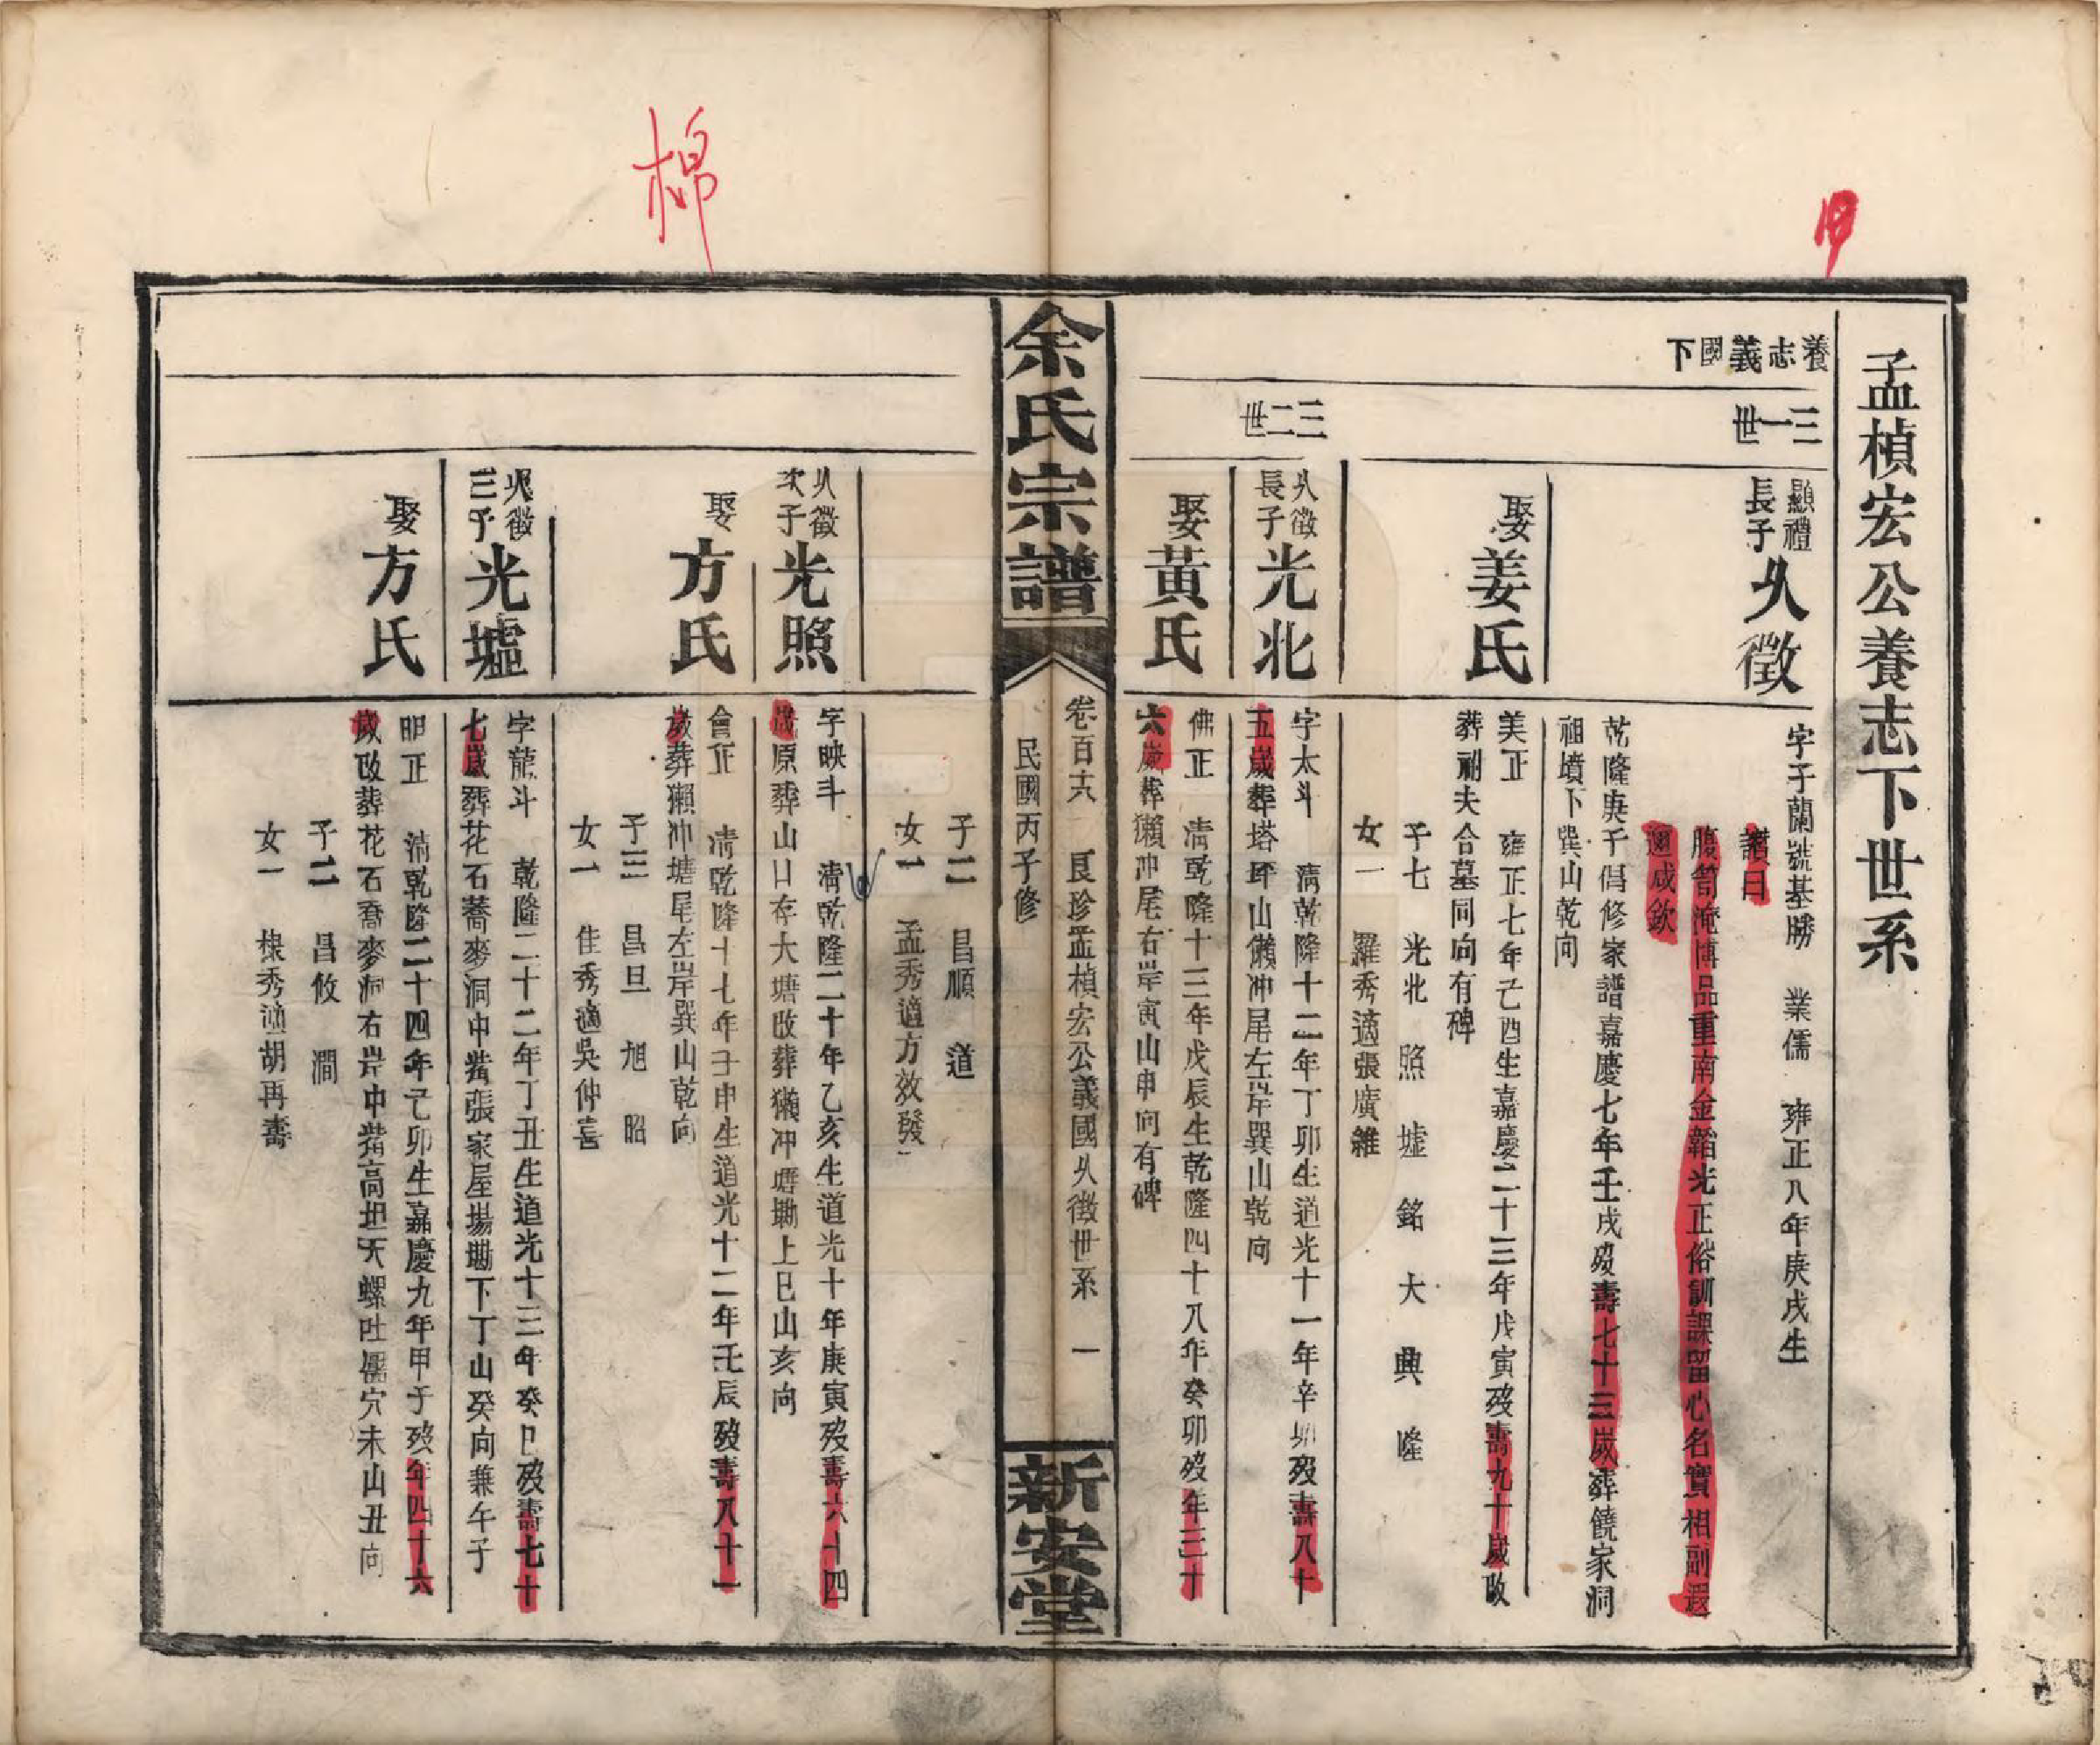 棉
孟楨宏公養志下世系
養志義國下
三一世
顯禮長子
久徵
字子蘭號基勝 業儒 雍正八年庚戌生
讚曰
腹笥淹博品重南金韜光正俗訓課留心名實相副遐
邇咸欽
乾隆庚子倡修家譜嘉慶七年壬戌歿壽七十三歲葬饒家洞
祖墳下巽山乾向
娶姜氏
美正 雍正七年己酉生嘉慶二十三年戊寅歿壽九十歲改
葬祔夫合墓同向有碑
子七 光北 照 墟 銘 大 典 隆
女一 羅秀適張廣雜
三二世
久徵長子
光北
字太斗 清乾隆十二年丁卯生道光十一年辛卯歿壽八十
五歲葬塔坪山懶冲尾左岸巽山乾向
娶黃氏
佛正 清乾隆十三年戊辰生乾隆四十八年癸卯歿年三十
六歲葬獺冲尾右岸寅山申向有碑
余氏宗譜
卷百六 良珍孟楨宏公義國久徵世系 一
民國丙子修
新安堂
子二 昌順 道
女一 孟秀適方效發
久徵次子
光照
字映斗 清乾隆二十年乙亥生道光十年庚寅歿壽六十四
歲原葬山口存大塘改葬獺冲塘墈上巳山亥向
娶方氏
會正 清乾隆十七年壬申生道光十二年壬辰歿壽八十一
歲葬獺冲塘尾左岸巽山乾向
子三 昌旦 旭 昭
女一 佳秀適吳仲喜
久徵三子
光墟
字龍斗 乾隆二十二年丁丑生道光十三年癸巳歿壽七十
七歲葬花石蕎麥洞中嘴張家屋場墈下丁山癸向兼午子
娶方氏
明正 清乾隆二十四年己卯生嘉慶九年甲子歿年四十六
歲改葬花石喬麥洞右岸中嘴高坦天螺吐穴未山丑向
子二 昌攸 澗
女一 棣秀適胡再壽